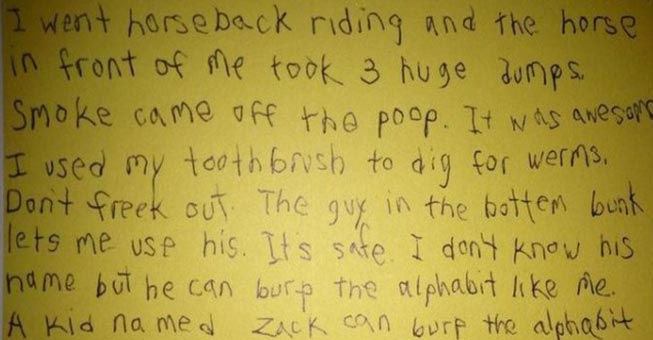 I went horseback riding and the horse
in front of me took 3 huge dumps.
Smoke came off the poop. It was awesome
I used my toothbrush to dig for werms.
Don't freek out. The guy in the bottem bunk
lets me use his. It's safe. I don't know his
name but he can burp the alphabit like me.
A kid named Zack can burp the alphabit